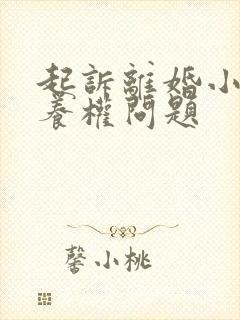 起訴離婚小
養權問題
馨小桃